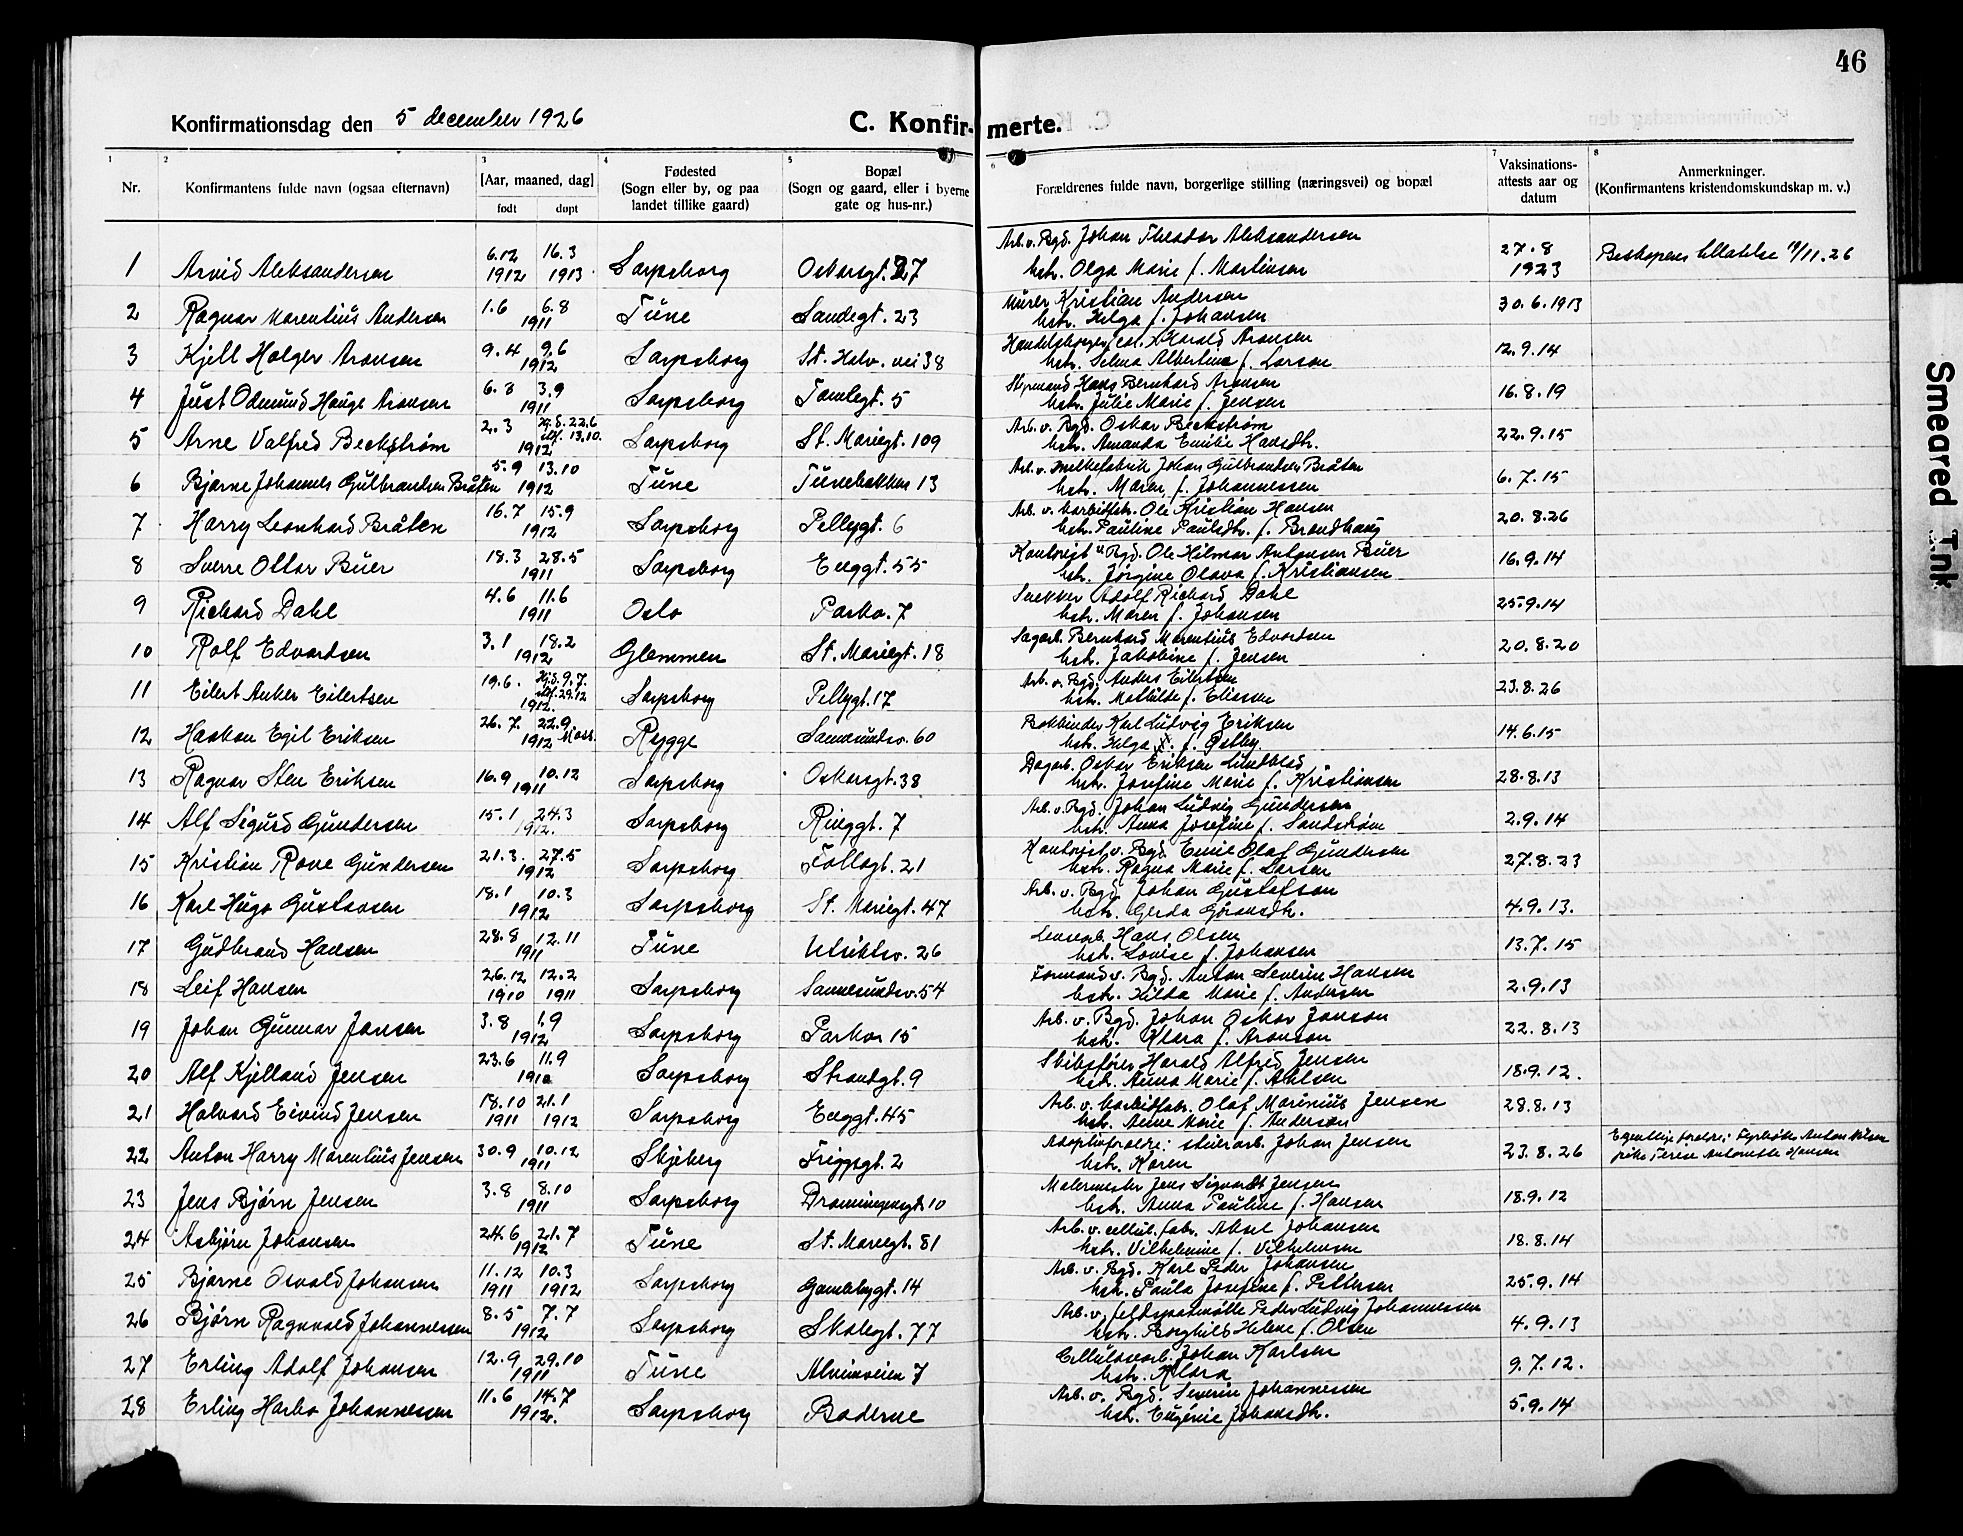 46
Konfirmationsdag den 5 december 1926
C. Konfir- merte.
1 2 3 4 5 6 7 8
Nr. Konfirmantens fulde navn (ogsaa efternavn) [Aar, maaned, dag] født døpt Fødested (Sogn eller by, og paa landet tillike gaard) Bopæl (Sogn og gaard, eller i byerne gate og hus-nr.) Forældrenes fulde navn, borgerlige stilling (næringsvei) og bopæl Vaksinations-attests aar og datum Anmerkninger. (Konfirmantens kristendomskundskap m. v.)
1 Arvid Aleksandersen 6.12 1912 16.3 1913 Sarpsborg Oskarsgt. 27 Arb. v. Bgd. Johan Theodor Aleksandersen 27.8 1923 Biskopens tillatelse /11.26
hstr. Olga Marie f. Martinsen
2 Ragnar Marentius Andersen 1.6 6.8 1911 Tune Sandegt. 23 Murer Kristian Andersen 30.6.1913
hstr. Helga f. Johansen
3 Kjell Holger Aronsen 9.4 9.6 1912 Sarpsborg St. Halv. vei 38 Harald Aronsen 12.9.14
hstr. Selma Albertine f. Larson
4 Just Odmund Hauge Aronsen 6.8 3.9 1911 Sarpsborg Tomlegt. 5 Styrmand Hans Bernhard Aronsen 16.8.19
hstr. Julie Marie f. Jensen
5 Arne Valfred Beckstrøm 2.3 Hj.d. 22.6 1912 13.10. Sarpsborg St. Mariegt. 109 Arb. v. Bgd. Oskar Beckstrøm 22.9.15
hstr. Amanda Emilie Hansdtr.
6 Bjarne Johannes Gulbrandsen Bråten 5.9 13.10 1912 Tune Tunebakken 13 Arb. v. melkefabrik Johan Gulbrandsen Bråten 6.7.15
hstr. Maren f. Johannessen
7 Harry Leonhard Bråten 16.7 15.9 1912 Sarpsborg Pellygt. 6 Arb. v. Ole Kristian Hansen 20.8.26
hstr. Pauline Paulsdtr. f. Brandhaug
8 Sverre Ottar Buer 18.3 28.5 1911 Sarpsborg Enggt. 55 Kontorist v. Bgd. Ole Hilmar Antonsen Buer 16.9.14
hstr. Jørgine Olava f. Kristiansen
9 Richard Dahl 4.6 11.6 1911 Oslo Parkv. 7 Snekker Adolf Richard Dahl 25.9.14
hstr. Maren f. Johansen
10 Rolf Edvardsen 3.1 18.2 1912 Glemmen St. Mariegt. 18 Sagarb. Bernhard Marentius Edvardsen 20.8.20
hstr. Jakobine f. Jensen
11 Eilert Anker Eilertsen 19.6. Hj.d. 9.7. 29.12 1912. Sarpsborg Pellygt. 17 Arb. v. Bgd. Anders Eilertsen 23.8.26
hstr. Mathilde f. Elissen
12 Haakon Egil Eriksen 26.7. 22.9 1912 Moss. Rygge Sannesundsv. 60 Bokbinder Karl Ludvig Eriksen 14.6.15
hstr. Helga f. Østby
13 Ragnar Sten Eriksen 16.9 10.12 1911 Sarpsborg Oskarsgt. 38 Dagarb. Oskar Eriksen Lundblad 28.8.13
hstr. Josefine Marie f. Kristiansen
14 Alf Sigurd Gundersen 15.1 24.3 1912. Sarpsborg Ringgt. 7 Arb. v. Bgd. Johan Ludvig Gundersen 2.9.14
hstr. Anna Josefine f. Sandstrøm
15 Kristian Rove Gundersen 21.3. 27.5 1912 Sarpsborg Tollogt. 21 Kontorist v. Bgd. Emil Olaf Gundersen 27.8.23
hstr. Ragna Marie f. Larsen
16 Karl Hugo Gustavsen 18.1 10.3 1912 Sarpsborg St. Mariegt. 47 Arb. v. Bgd. Johan Gustafson 4.9.13.
hstr. Gerda Göransdtr.
17 Gudbrand Hansen 28.8 12.11 1911 Tune Utsiktsv. 26 Lensearb. Hans Olsen 13.7.15
hstr. Lovise f. Johansen
18 Leif Hansen 26.12 1910 12.2 1911 Sarpsborg Sannesundsv. 54 Formand v. Bgd. Anton Severin Hansen 2.9.13
hstr. Hilda Marie f. Andersen
19 Johan Gunnar Jansen 3.8 1.9 1912 Sarpsborg Parkv. 15 Arb. v. Bgd. Johan Oskar Janson 22.8.13
hstr. Klara f. Aronson
20 Alf Kjelland Jensen 23.6 11.9 Sarpsborg Strandgt. 9 Skibsfører Harald Alfred Jensen 18.9.12.
hstr. Anna Marie f. Ahlsen
21 Halvard Eivind Jensen 18.10 1911 21.1 1912 Sarpsborg Enggt. 45 Arb. v. Olaf Marinius Jensen 28.8.13
hstr. Anne Marie f. Anderson
22 Anton Harry Marentius Jensen 30.9 10.12 1911 Skjeberg Friggsgt. 2 Adoptivforeldre: Johan Jensen 23.8.26 Egentlige foreldre: Fyrbøter Anton Nilsen
hstr. Karen pike Terese Antonette Hansen
23 Jens Bjørn Jensen 3.8 8.10 1911 Sarpsborg Dronningensgt 10 Malermester Jens Sigvardt Jensen 18.9.12
hstr. Anna Pauline f. Hansen
24 Asbjørn Johansen 24.6 21.7 1912 Tune St. Mariegt. 81 Arb. v. cellul. fabr. Aksel Johansen 18.8.14
hstr. Vilhelmine f. Vilhelmsen
25 Bjarne Osvald Johansen 11.12 1911 10.3 1912 Sarpsborg Gamlebygt. 14 Arb. v. Bgd. Karl Peder Johansen 25.9.14
hstr. Paula Josefine f. Pettersen
26 Bjørn Ragnvald Johannessen 8.5 7.7 1912 Sarpsborg Skolegt. 77 Arb. v. feldspatmølle Peder Ludvig Johannessen 4.9.13
hstr. Borghild Helene f. Olsen
27 Erling Adolf Johansen 12.9 29.10 1911 Tune Alvimveien 7 Cellulosearb. Johan Karlsen 9.7.12.
hstr. Klara
28 Erling Harbo Johannessen 11.6 14.7 1912. Sarpsborg Baderne Arb. v. Bgd. Severin Johannessen 5.9.14
hstr. Eugénie Johansdtr.
Smeared Ink